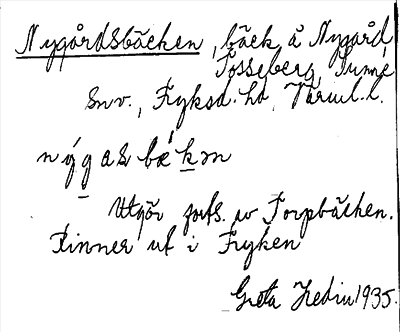 Nygårdsbäcken, bäck å Nygård,
Fosseberg, Sunne
snv., Fryksd. hd, Värml. l.
nýgas bækən
Utgör forts. av Torpbäcken.
Rinner ut i Fryken
Greta Hedin 1935.